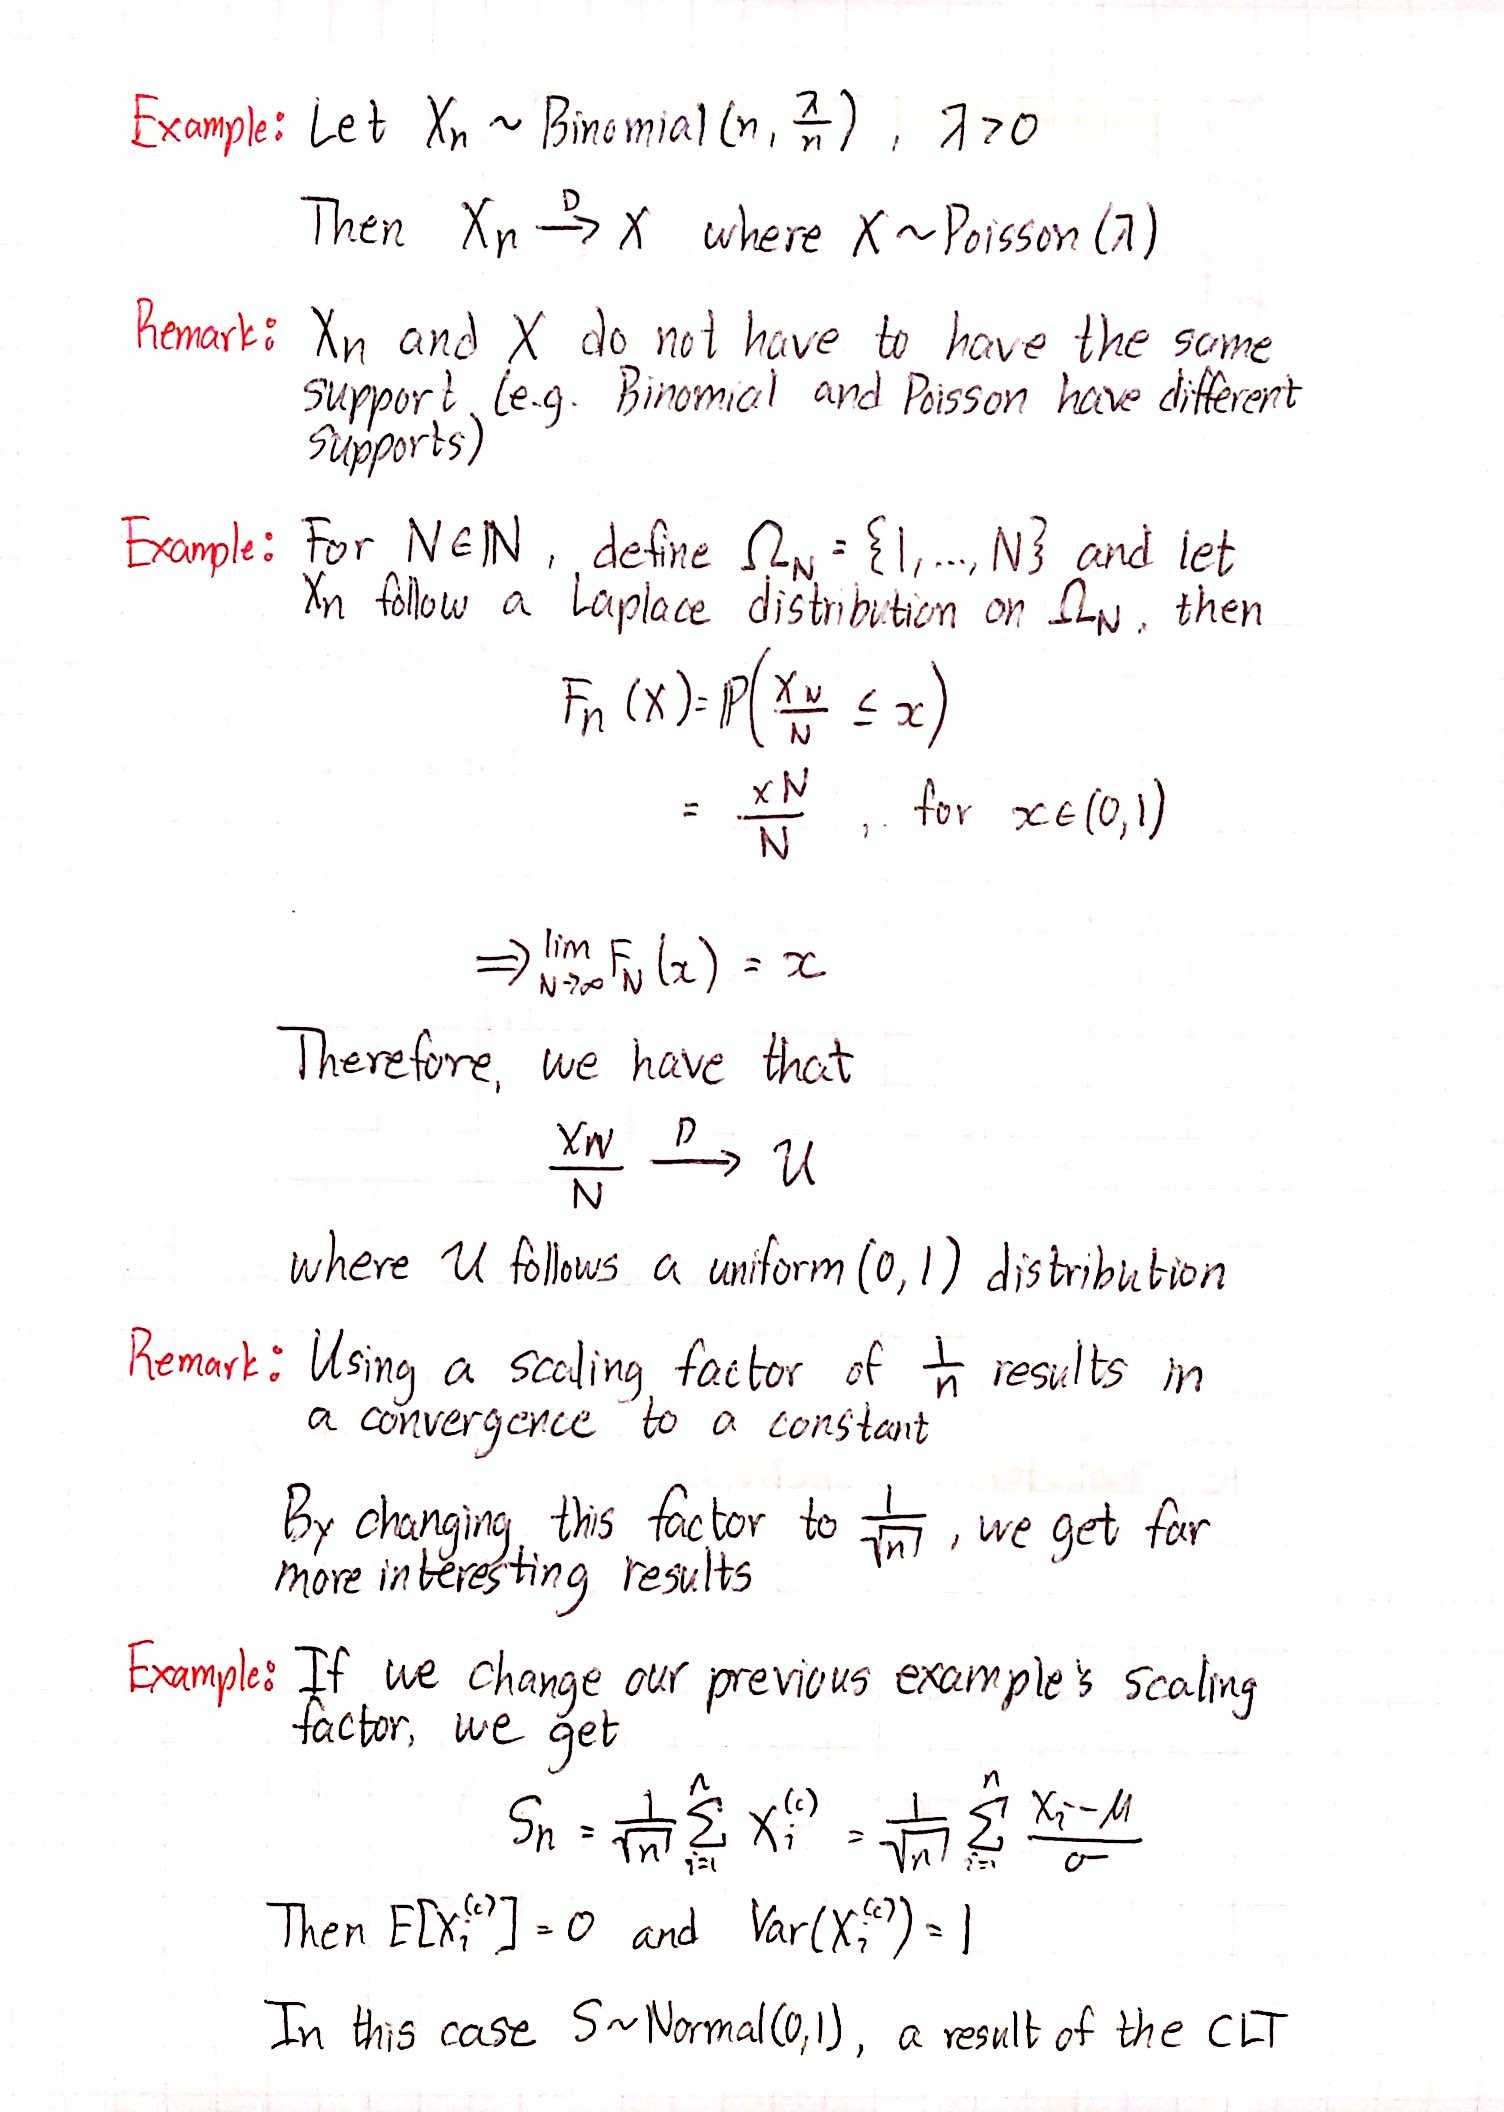 Example: Let Xₙ ~ Binomial (n, λ/n), λ>0
Then Xₙ →ᴰ X where X ~ Poisson (λ)
Remark: Xₙ and X do not have to have the same
support (e.g. Binomial and Poisson have different
supports)
Example: For N ∈ ℕ, define Ω_N = {1, ..., N} and let
Xₙ follow a Laplace distribution on Ω_N, then
Fₙ (X) = ℙ(X_N/N ≤ x)
= xN/N, for x ∈ (0,1)
⇒ lim_{N→∞} F_N (x) = x
Therefore, we have that
X_N/N →ᴰ U
where U follows a uniform (0,1) distribution
Remark: Using a scaling factor of 1/n results in
a convergence to a constant
By changing this factor to 1/√n, we get far
more interesting results
Example: If we change our previous example's scaling
factor, we get
Sₙ = 1/√n ∑_{i=1}^{n} X_i^{(c)} = 1/√n ∑_{i=1}^{n} (X_i - μ)/σ
Then E[X_i^{(c)}] = 0 and Var(X_i^{(c)}) = 1
In this case S ~ Normal(0,1), a result of the CLT